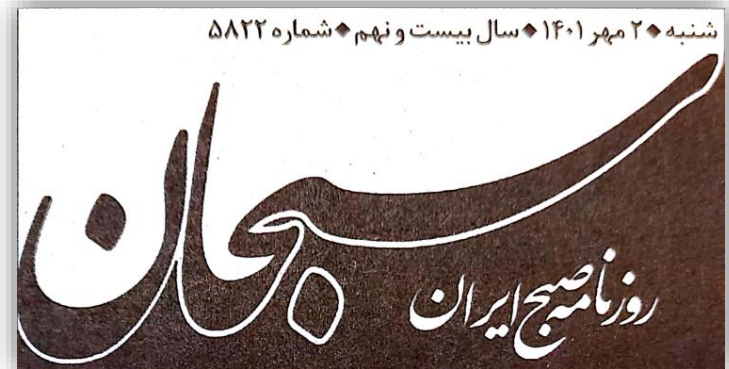 شنبه ◆ ۲ مهر ۱۴۰۱ ◆ سال بیست و نهم ◆ شماره ۵۸۲۲
سبحان
روزنامه صبح ایران